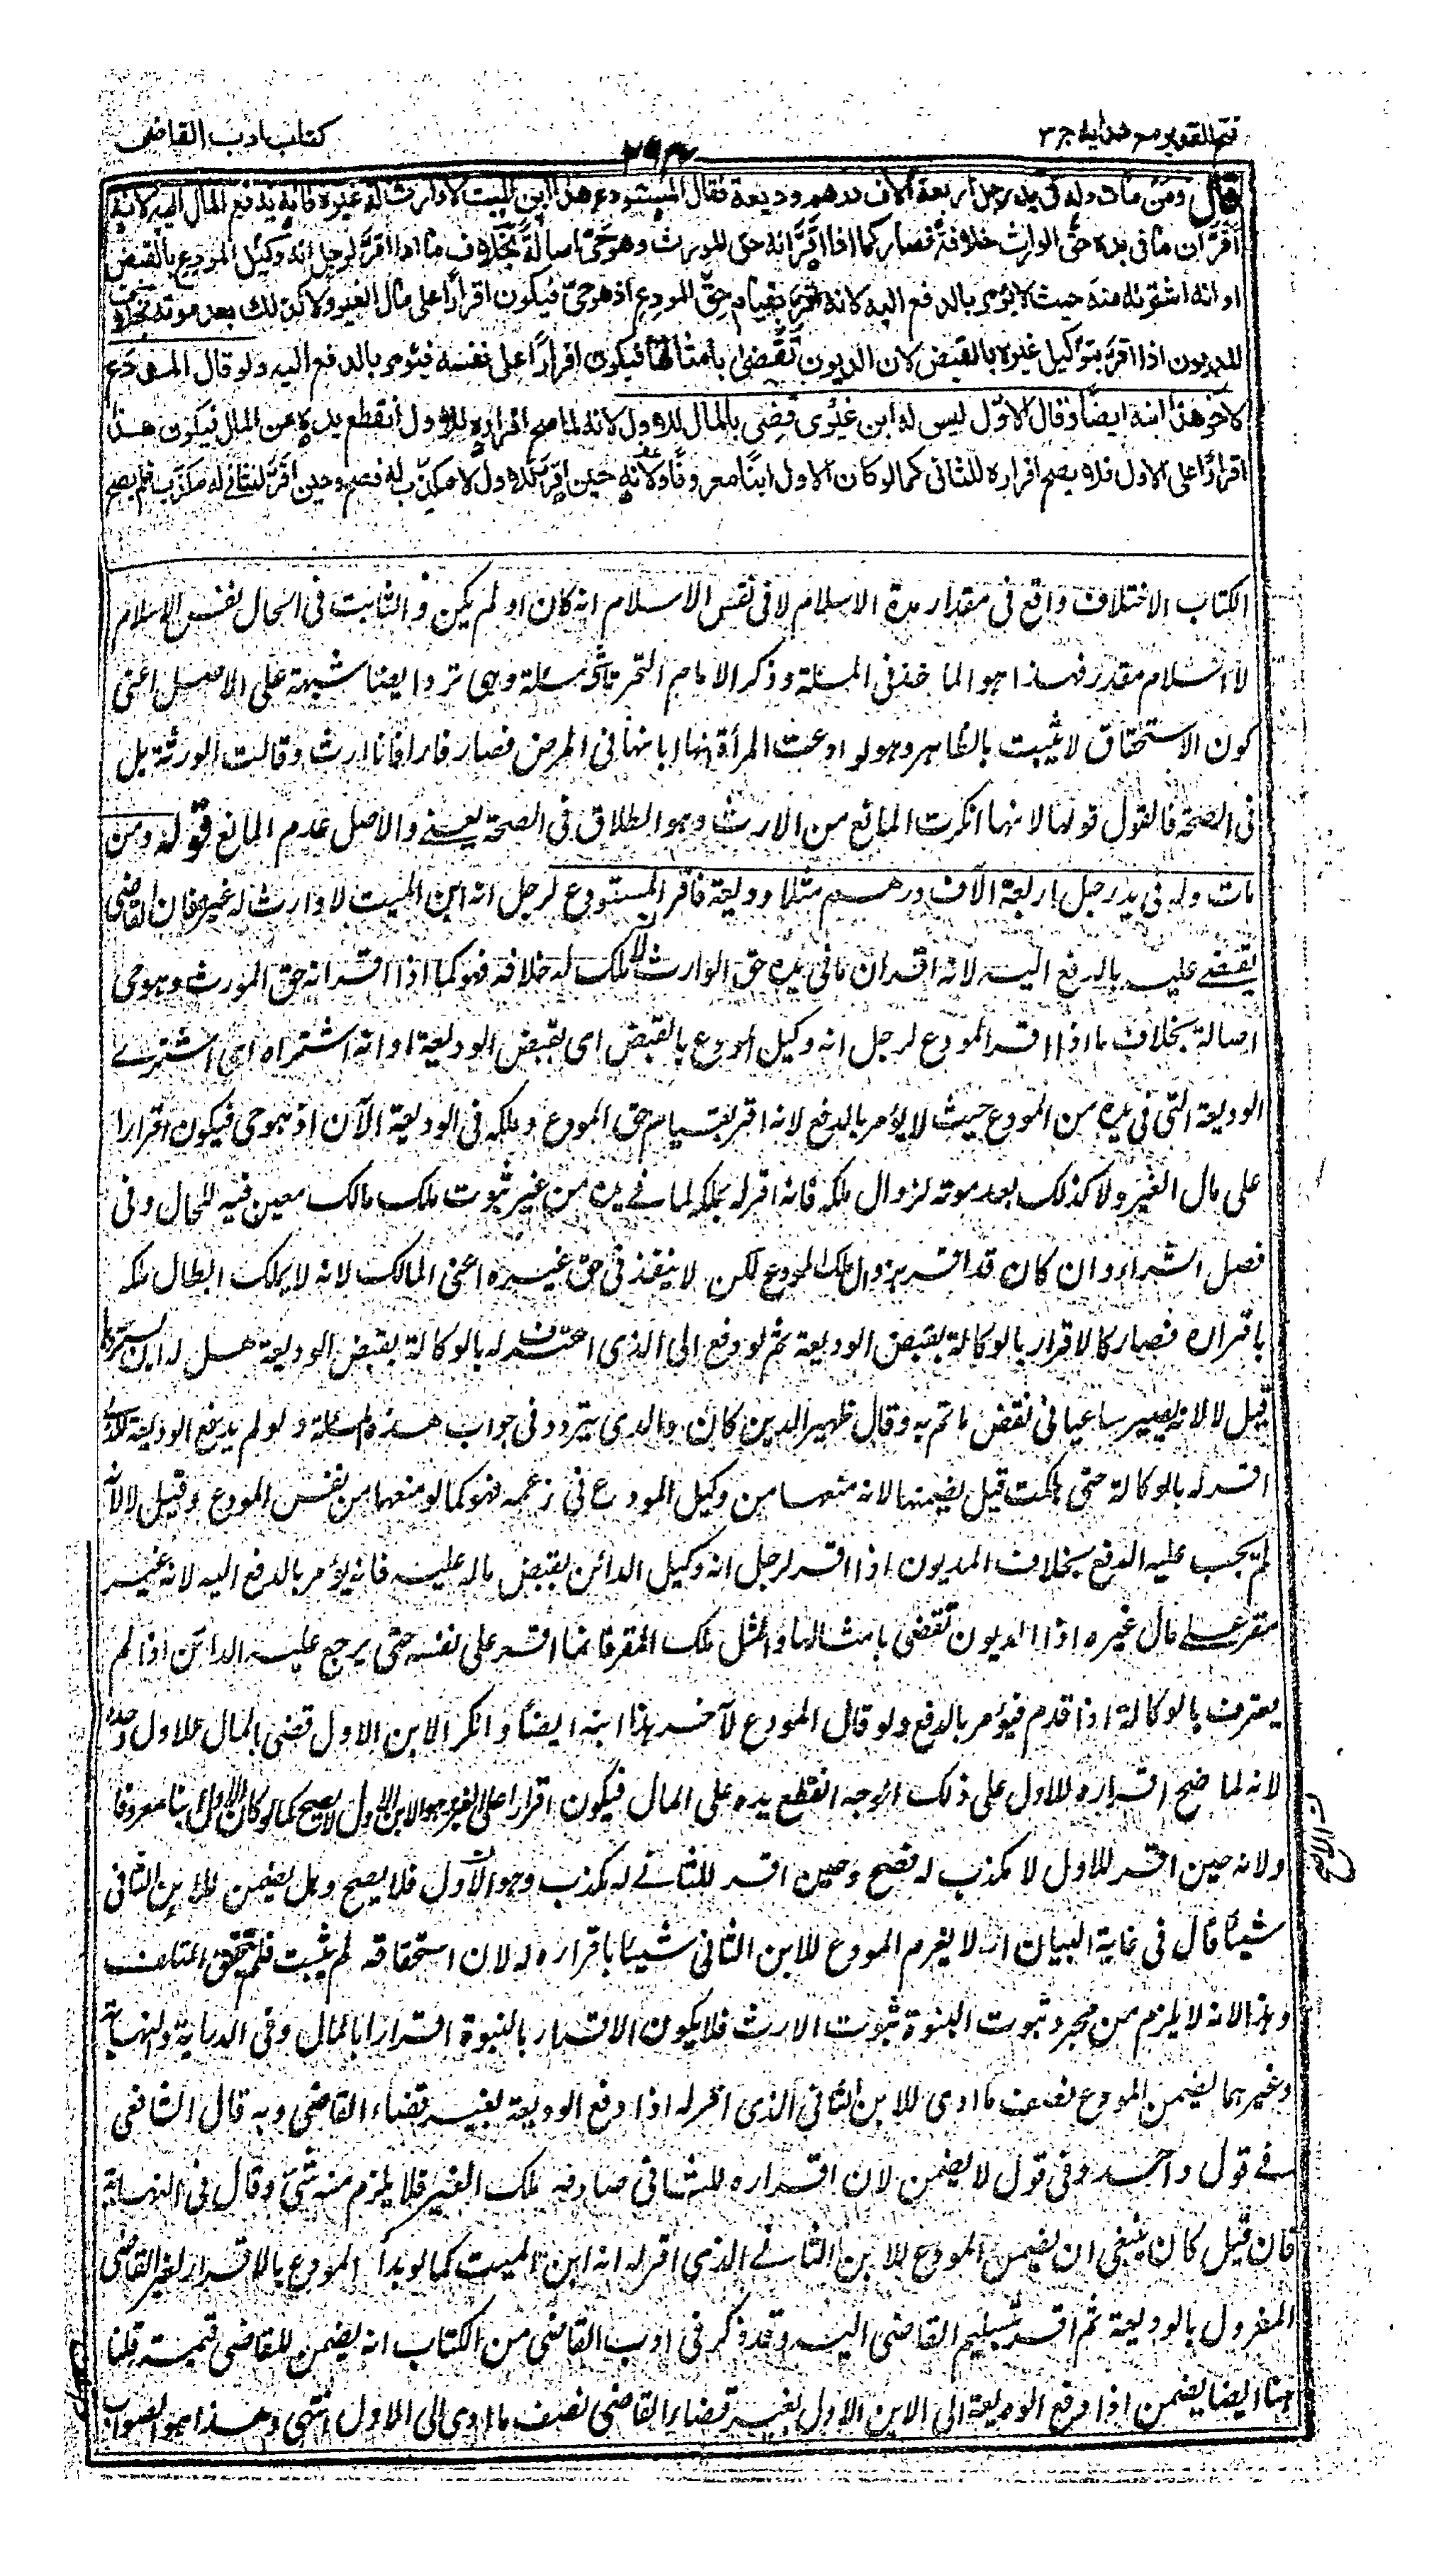 فتح القدير مع هداية ج ٣
كتاب ادب القاضي
قال ومن مات وله في يد رجل اربعة آلاف درهم وديعة فقال المستودع هذا ابن الميت لا وارث له غيره فانه يدفع المال اليه لانه
اقر ان ما في يده حق الوارث خلافة فصار كما اذا اقر انه حق المورث وهو حي اصالة بخلاف ما اذا اقر لرجل انه وكيل المودع بالقبض
او انه اشتراه منه حيث لا يؤمر بالدفع اليه لانه اقر بقيام حق المودع اذ هو حي فيكون اقرارا على مال الغير ولا كذلك بعد موته بخلاف
المديون اذا اقر بتوكيل غيره بالقبض لان الديون تقضى بامثالها فيكون اقرارا على نفسه فيؤمر بالدفع اليه ولو قال المودع
لآخر هذا ابنه ايضا وقال الاول ليس له ابن غيري قضي بالمال للاول لانه لما صح اقراره للاول انقطع يده عن المال فيكون هذا
اقرارا على الاول فلا يصح اقراره للثاني كما لو كان الاول ابنا معروفا ولانه حين اقر للاول لا مكذب له فصح وحين اقر للثاني له مكذب فلم يصح
الكتاب الاختلاف واقع في مقدار مدة الاسلام لا في نفس الاسلام انه كان او لم يكن والثابت في الحال نفس الاسلام
لا اسلام مقدر فهذا هو الماخذ في المسئلة وذكر الامام التمرتاشي مسئلة وهي ترد ايضا شبهة على الاصل اعني
كون الاستحقاق لا يثبت بالظاهر وهو لو ادعت المرأة انه ابانها في المرض فصار فارا فانا ارث وقالت الورثة بل
في الصحة فالقول قولها لانها انكرت المانع من الارث وهو الطلاق في الصحة يعني والاصل عدم المانع قوله ومن
مات وله في يد رجل اربعة الآف درهم مثلا وديعة فاقر المستودع لرجل انه ابن الميت لا وارث له غيره فان القاضي
يقضي عليه بالدفع اليه لانه اقر ان ما في يده حق الوارث لانه ملك له خلافة فهو كما اذا اقر انه حق المورث وهو حي
اصالة بخلاف ما اذا اقر المودع لرجل انه وكيل المودع بالقبض اى بقبض الوديعة او انه اشتراه اى اشترى
الوديعة التي في يده من المودع حيث لا يؤمر بالدفع لانه اقر بقيام حق المودع وملكه في الوديعة الآن اذ هو حي فيكون اقرارا
على مال الغير ولا كذلك بعد موته لزوال ملكه فانه اقر له بملكه لما في يده من غير ثبوت ملك مالك معين فيه للحال وفي
فصل الشراء وان كان قد اقر بزوال ملك المودع لكن لا ينفذ في حق غيره اعني المالك لانه لا يملك ابطال ملكه
باقراره فصار كالاقرار بالوكالة بقبض الوديعة ثم لو دفع الى الذي اعترف له بالوكالة بقبض الوديعة هل له ان يستردها
قيل لا لانه يصير ساعيا في نقض ما تم به وقال ظهير الدين كان والدي يتردد في جواب هذه المسئلة ولو لم يدفع الوديعة
اقر له بالوكالة حتى هلكت قيل يضمنها لانه منعها من وكيل المودع في زعمه فهو كما لو منعها من نفس المودع وقيل لا لانه
لم يجب عليه الدفع بخلاف المديون اذا اقر لرجل انه وكيل الدائن بقبض ماله عليه فانه يؤمر بالدفع اليه لانه غير
مقر على مال غيره اذا الديون تقضى بامثالها والمثل ملك المقر فانما اقر على نفسه حتى يرجع عليه الدائن اذا لم
يعترف بالوكالة اذا قدم فيؤمر بالدفع ولو قال المودع لآخر هذا ابنه ايضا وانكر الابن الاول قضى بالمال للاول وحده
لانه لما صح اقراره للاول على ذلك الوجه انقطع يده على المال فيكون اقرارا على الغير وهو الابن الاول لا يصح كما لو كان الاول ابنا معروفا
ولانه حين اقر للاول لا مكذب له فصح وحين اقر للثاني له مكذب وهو الاول فلا يصح وهل يضمن للابن الثاني
شيئا قال في غاية البيان انه لا يغرم المودع للابن الثاني شيئا باقراره له لان استحقاقه لم يثبت فلم يتحقق التلف
وهذا لانه لا يلزم من مجرد ثبوت البنوة ثبوت الارث فلا يكون الاقرار بالبنوة اقرارا بالمال وفي الدراية والنهاية
وغيرهما يضمن المودع نصف ما ادى للابن الثاني الذي اقر له اذا دفع الوديعة بغير قضاء القاضي وبه قال الشافعي
في قول واحمد وفي قول لا يضمن لان اقراره للثاني صادفه ملك الغير فلا يلزم منه شيء وقال في النهاية
فان قيل كان ينبغي ان يضمن المودع للابن الثاني الذي اقر له انه ابن الميت كما لو بدأ المودع بالاقرار لغير القاضي
المعزول بالوديعة ثم اقر بتسليم القاضي اليه وقد ذكر في ادب القاضي من الكتاب انه يضمن للقاضي قيمته قلنا
هنا ايضا يضمن اذا دفع الوديعة الى الابن الاول بغير قضاء القاضي نصف ما ادى الى الاول انتهى وهذا هو الصواب